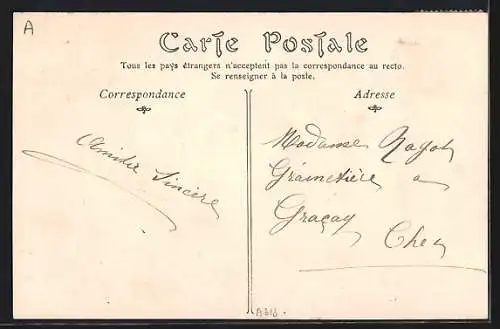 A
Carte Postale
Tous les pays étrangers n'acceptent pas la correspondance au recto.
Se renseigner à la poste.
Correspondance
Amitié Sincère
Adresse
Madame Rayot
Grainetière a
Graçay
Cher
A318.